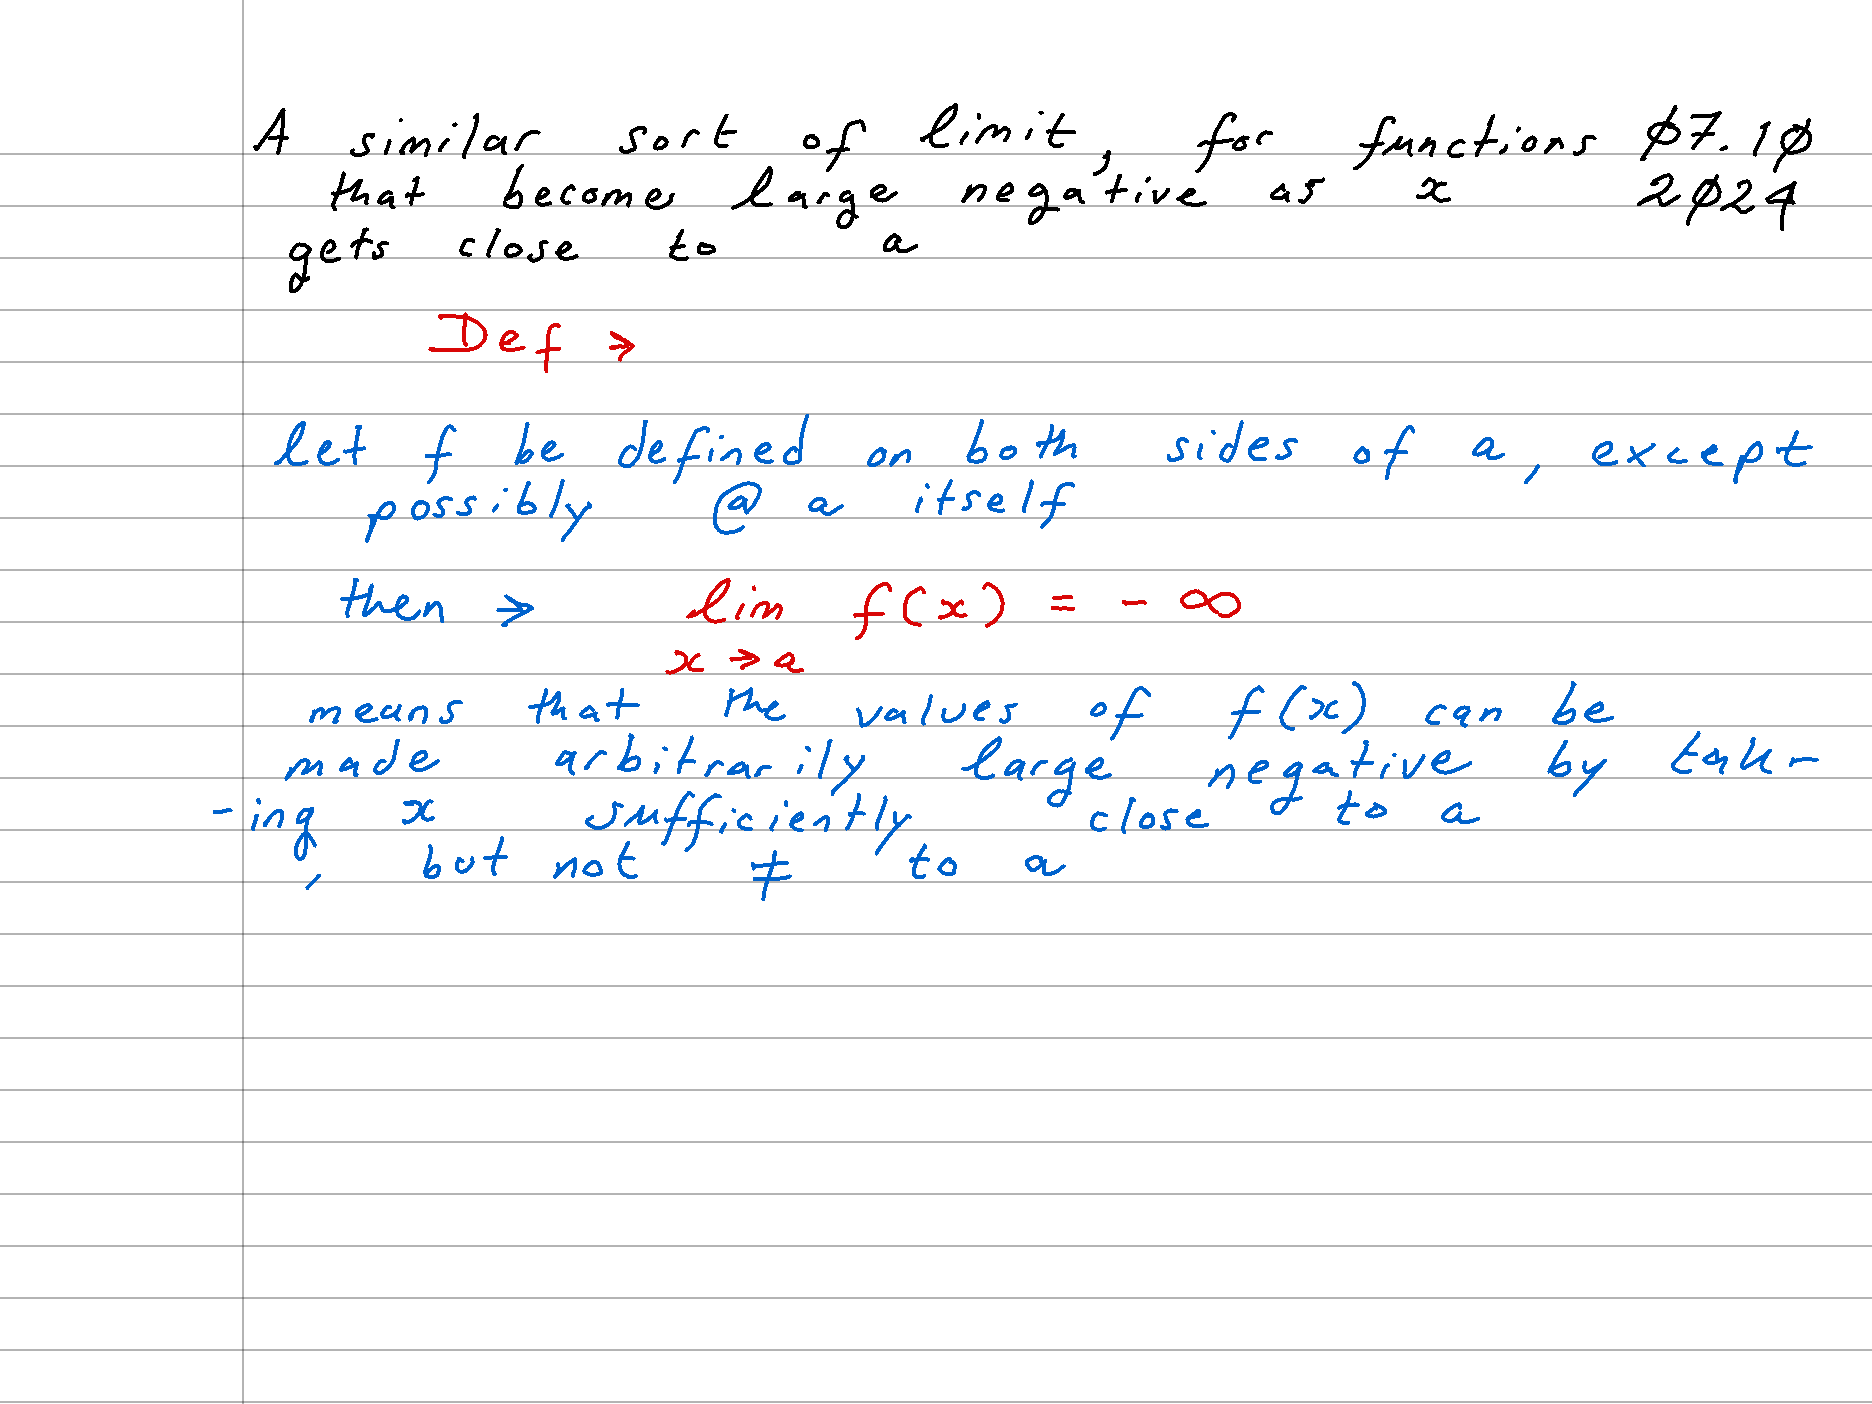 A similar sort of limit, for functions Ø7.1Ø
that become large negative as x 2Ø24
gets close to a
Def →
let f be defined on both sides of a, except
possibly @ a itself
then → lim f(x) = - ∞
x → a
means that the values of f(x) can be
made arbitrarily large negative by tak-
-ing x sufficiently close to a
, but not ≠ to a